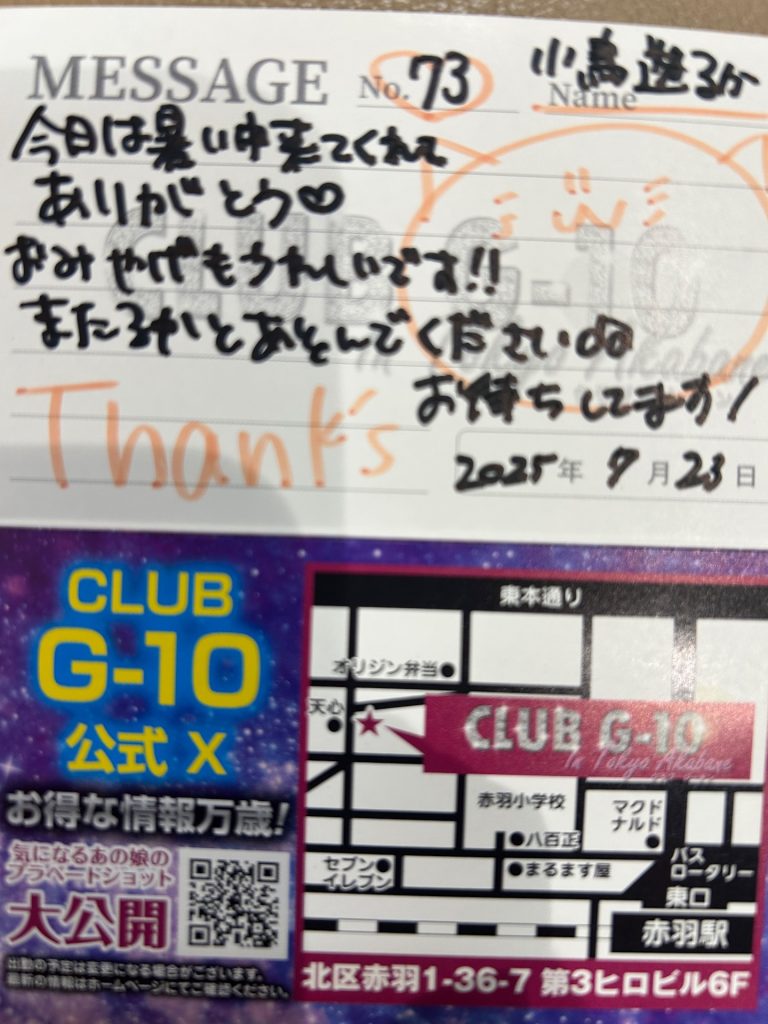 MESSAGE No.73 小鳥遊るか
Name
今日は暑い中来てくれて
ありがとう♡
おみやげもうれしいです!!
またるかとあそんでください
お待ちしてます!
Thank's
2025年 7月23日
CLUB G-10
In Tokyo Akabane
CLUB
G-10
公式 X
お得な情報万歳!
気になるあの娘の
プラベートショット
大公開
出勤の予定は変更になる場合がございます。
最新の情報はホームページにてご確認ください。
東本通り
オリジン弁当
天心
CLUB G-10
In Tokyo Akabane
赤羽小学校
マクド
ナルド
八百正
セブン
イレブン
まるます屋
バス
ロータリー
東口
赤羽駅
北区赤羽1-36-7 第3ヒロビル6F